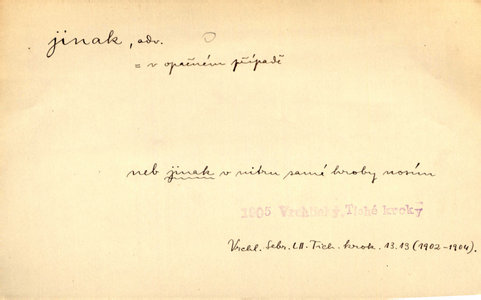 jinak, adv.
= v opačném případě
neb jinak v nitru samé hroby nosím
1905 Vrchlický, Tiché kroky
Vrchl. Sebr. LII. Tich. krok. 13.13 (1902-1904).